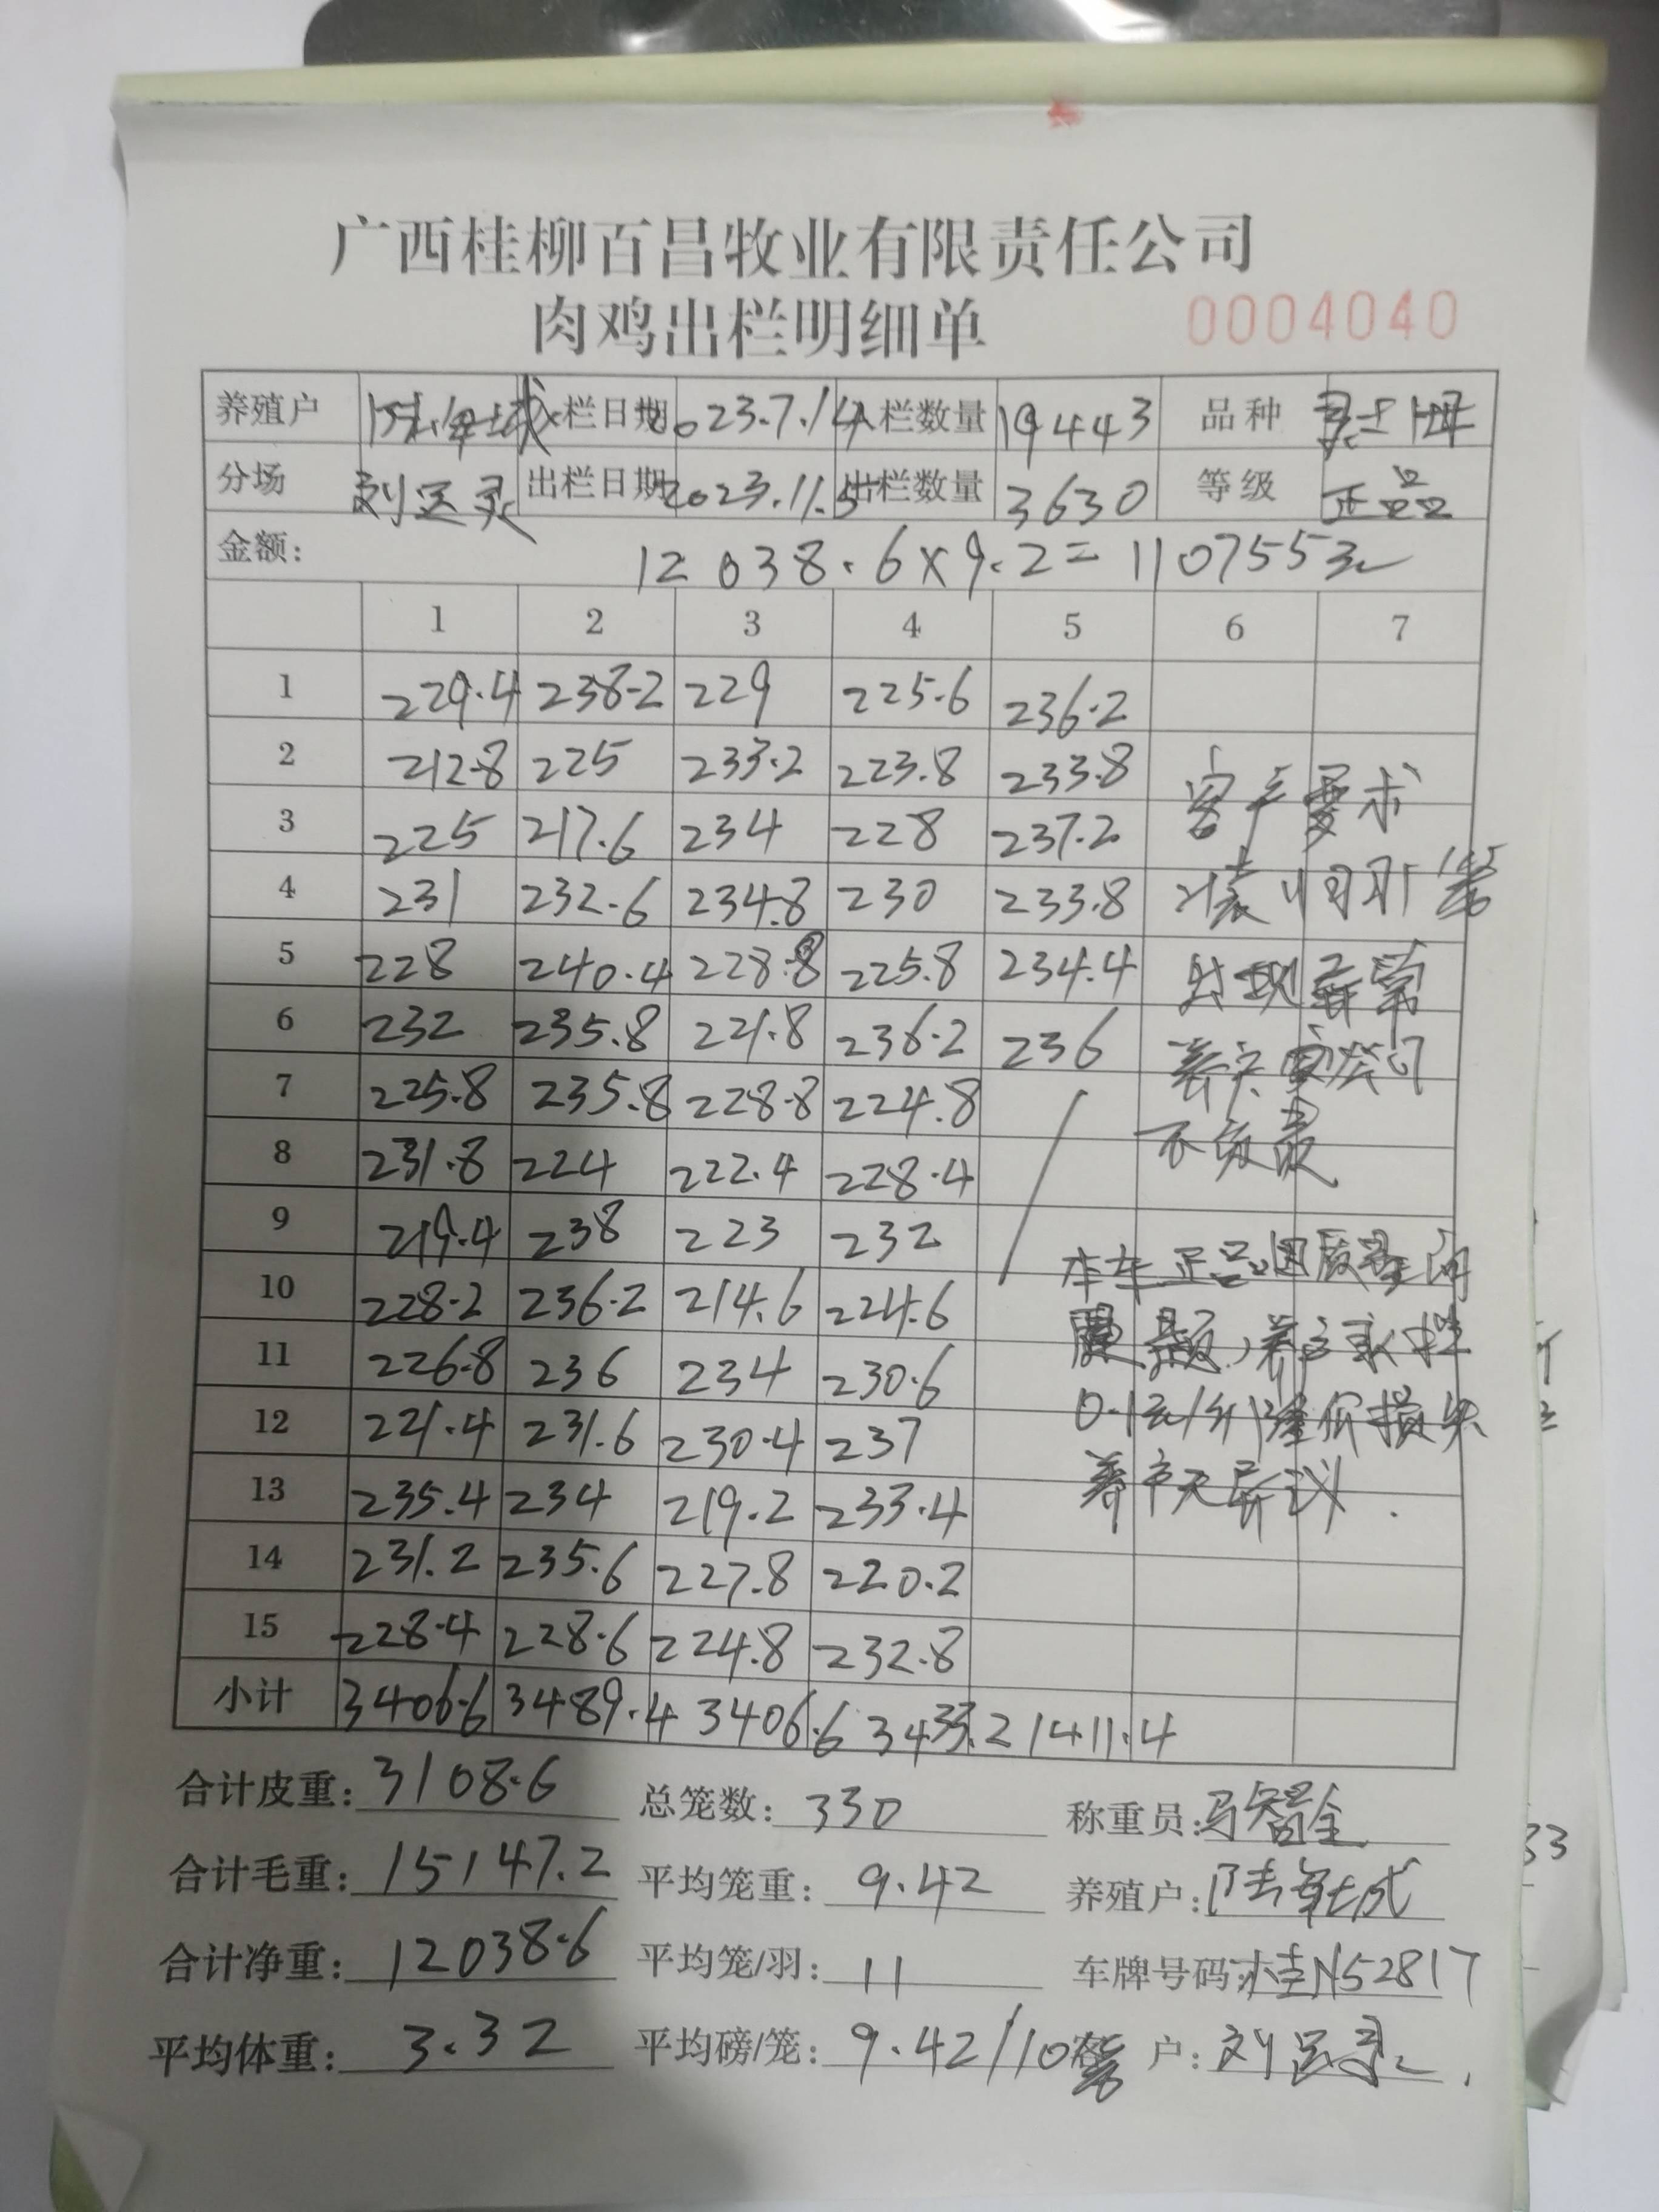 广西桂柳百昌牧业有限责任公司
肉鸡出栏明细单 0004040
养殖户 入栏日期 2023.7.14 入栏数量 19443 品种
分场 出栏日期 2023.11.5 出栏数量 3630 等级 正品
金额: 12038.6×9.2=110755元
1 2 3 4 5 6 7
1 229.4 238.2 229 225.6 236.2
2 212.8 225 233.2 223.8 233.8
3 225 217.6 234 228 237.2
4 231 232.6 234.8 230 233.8
5 228 240.4 228.8 225.8 234.4
6 232 235.8 221.8 236.2 236
7 225.8 235.8 228.8 224.8
8 231.8 224 222.4 228.4
9 219.4 238 223 232
10 228.2 236.2 214.6 224.6
11 226.8 236 234 230.6
12 221.4 231.6 230.4 237
13 235.4 234 219.2 233.4
14 231.2 235.6 227.8 220.2
15 228.4 228.6 224.8 232.8
小计 3406.6 3489.4 3406.6 3433.2 1411.4
客户要求
装 11只/笼
出现
不负责
本车正品因
0.1元/斤 价损失
养户无异议.
合计皮重: 3108.6 总笼数: 330 称重员: 马智全
合计毛重: 15147.2 平均笼重: 9.42 养殖户:
合计净重: 12038.6 平均笼/羽: 11 车牌号码: 桂N52817
平均体重: 3.32 平均磅/笼: 9.42/10笼 客户: